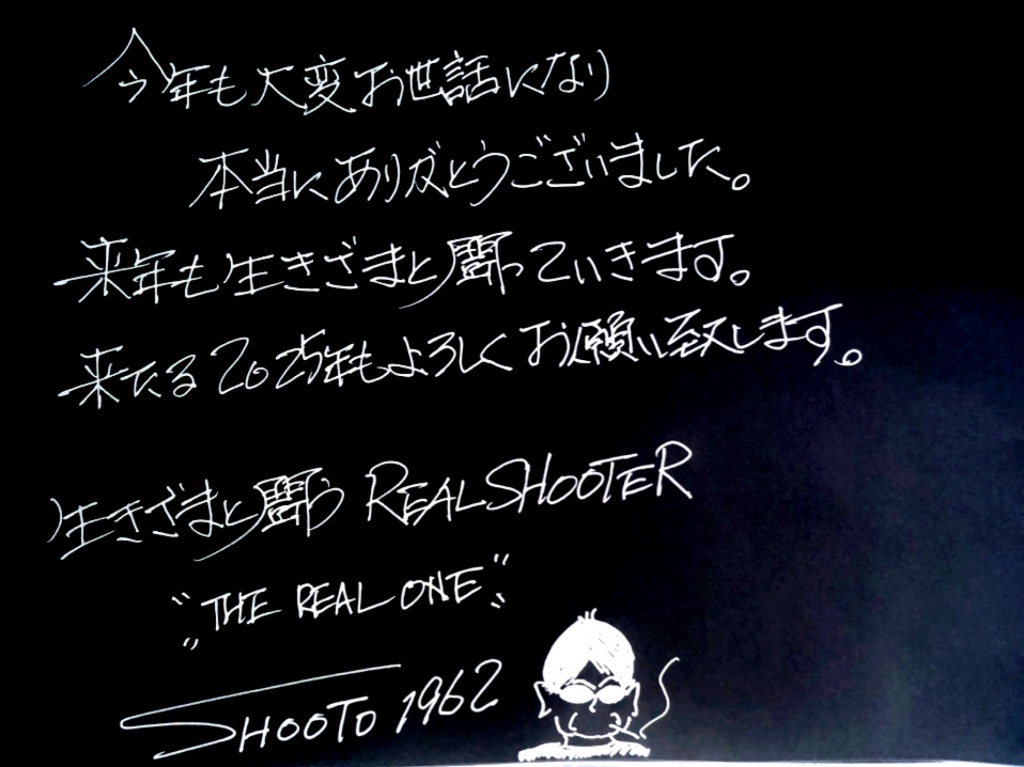 今年も大変お世話になり
本当にありがとうございました。
来年も生きざまと闘っていきます。
来たる2025年もよろしくお願い致します。
生きざまと闘う REALSHOOTER
"THE REAL ONE"
SHOOTO 1962